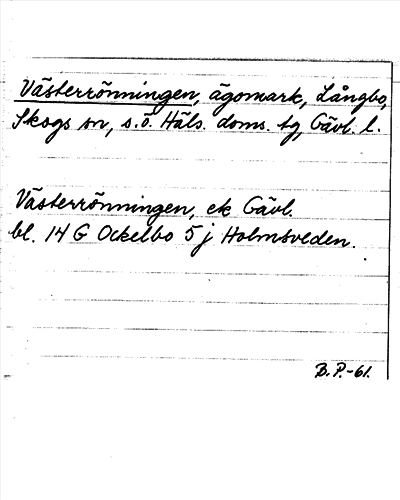 Västerrönningen, ägomark, Långbo,
Skogs sn, s.ö. Häls. doms. tg, Gävl. l.
Västerrönningen, ek Gävl.
bl. 14 G Ockelbo 5 j Holmsveden.
B.P.-61.